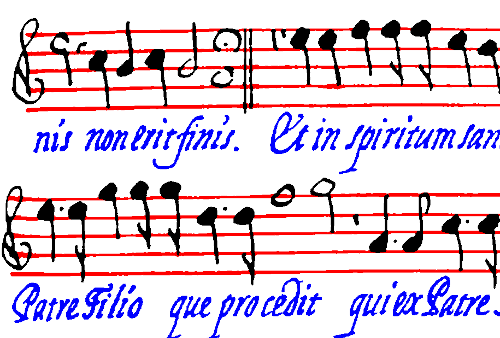 nis non erit finis. Et in spiritum san
Patre Filio que procedit qui ex Patre